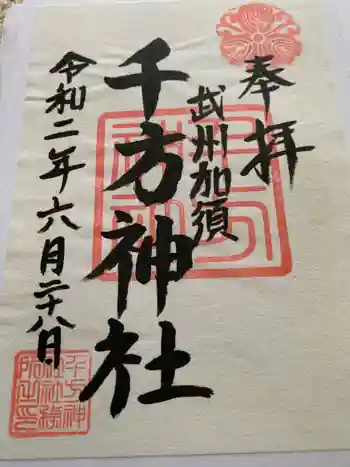 奉拝
武州加須
千方神社
令和二年六月二十八日